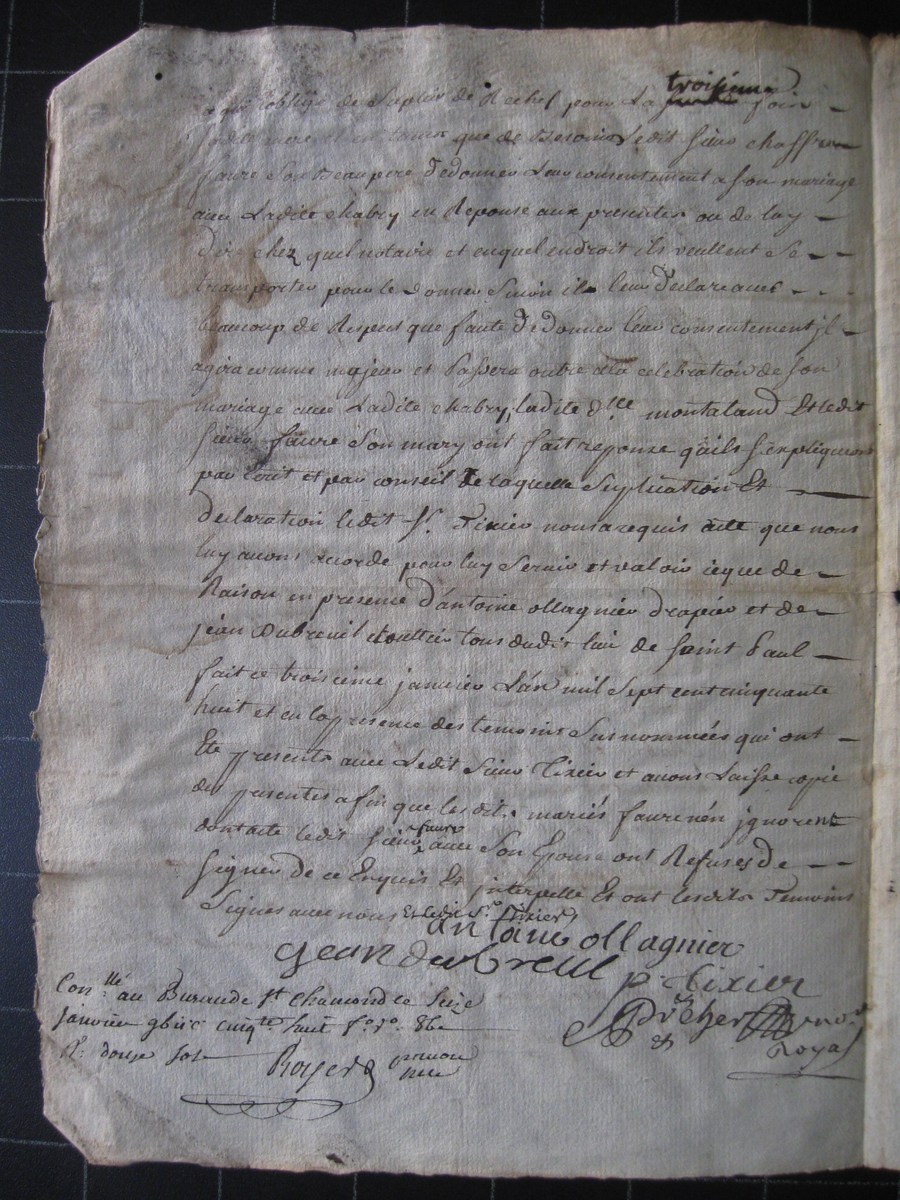 obligé de suplier de Rechef pour La troisieme fois
Laditte mere et en tant que de Besoin Ledit sieur chaffre
faure son Beaupere De donner Leur consentement a son mariage
avec Ladite chabry en Reponse aux presentes ou de luy
dire chez quel notaire et en quel endroit ils veullent se
transporter pour le donner sinon il Leur Declare avec
beaucoup de Respect que faute De donner leur consentement jl
agira comme majeur et Passera outre a la celebration de son
mariage avec Ladite chabry, ladite d.lle montaland Et ledit
sieur faure son mary ont fait reponse quils s'expliqueront
par ecrit et par conseil De laquelle suplication Et
declaration ledit S.r Tixier nous a requis acte que nous
luy avons accordé pour luy servir et valoir ce que de
Raison en presence d'antoine ollagnier drapier et de
jean dubreuil tous dudit lieu de saint Paul
fait ce troisieme janvier L'an mil sept cent cinquante
huit et en la presence des temoins susnommées qui ont
Ete presents avec Ledit sieur Tixier et avons Laissé copie
des presentes afin que lesdits mariés faure n'en jgnorent
dont acte ledit sieur faure avec son Epouse ont Refusés de
signer de ce Enquis Et jnterpellé Et ont lesdits Temoins
Signes avec nous Et ledit S.r Tixier
antoine ollagnier
jean dubreuil
p. Tixier
Con.llé au Bureau de S.t Chamond le seize
janvier cinq.te huit
R. douze sols
Royer
Royal